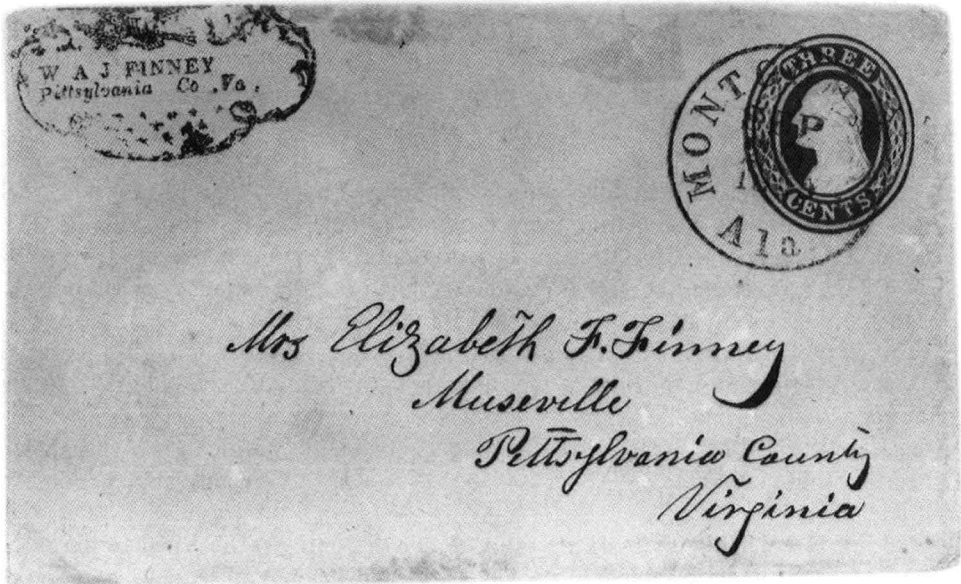 W A J FINNEY
Pittsylvania Co. Va.
THREE
CENTS
MONT
P
Ala
Mrs Elizabeth F. Finney
Museville
Pittsylvania County
Virginia